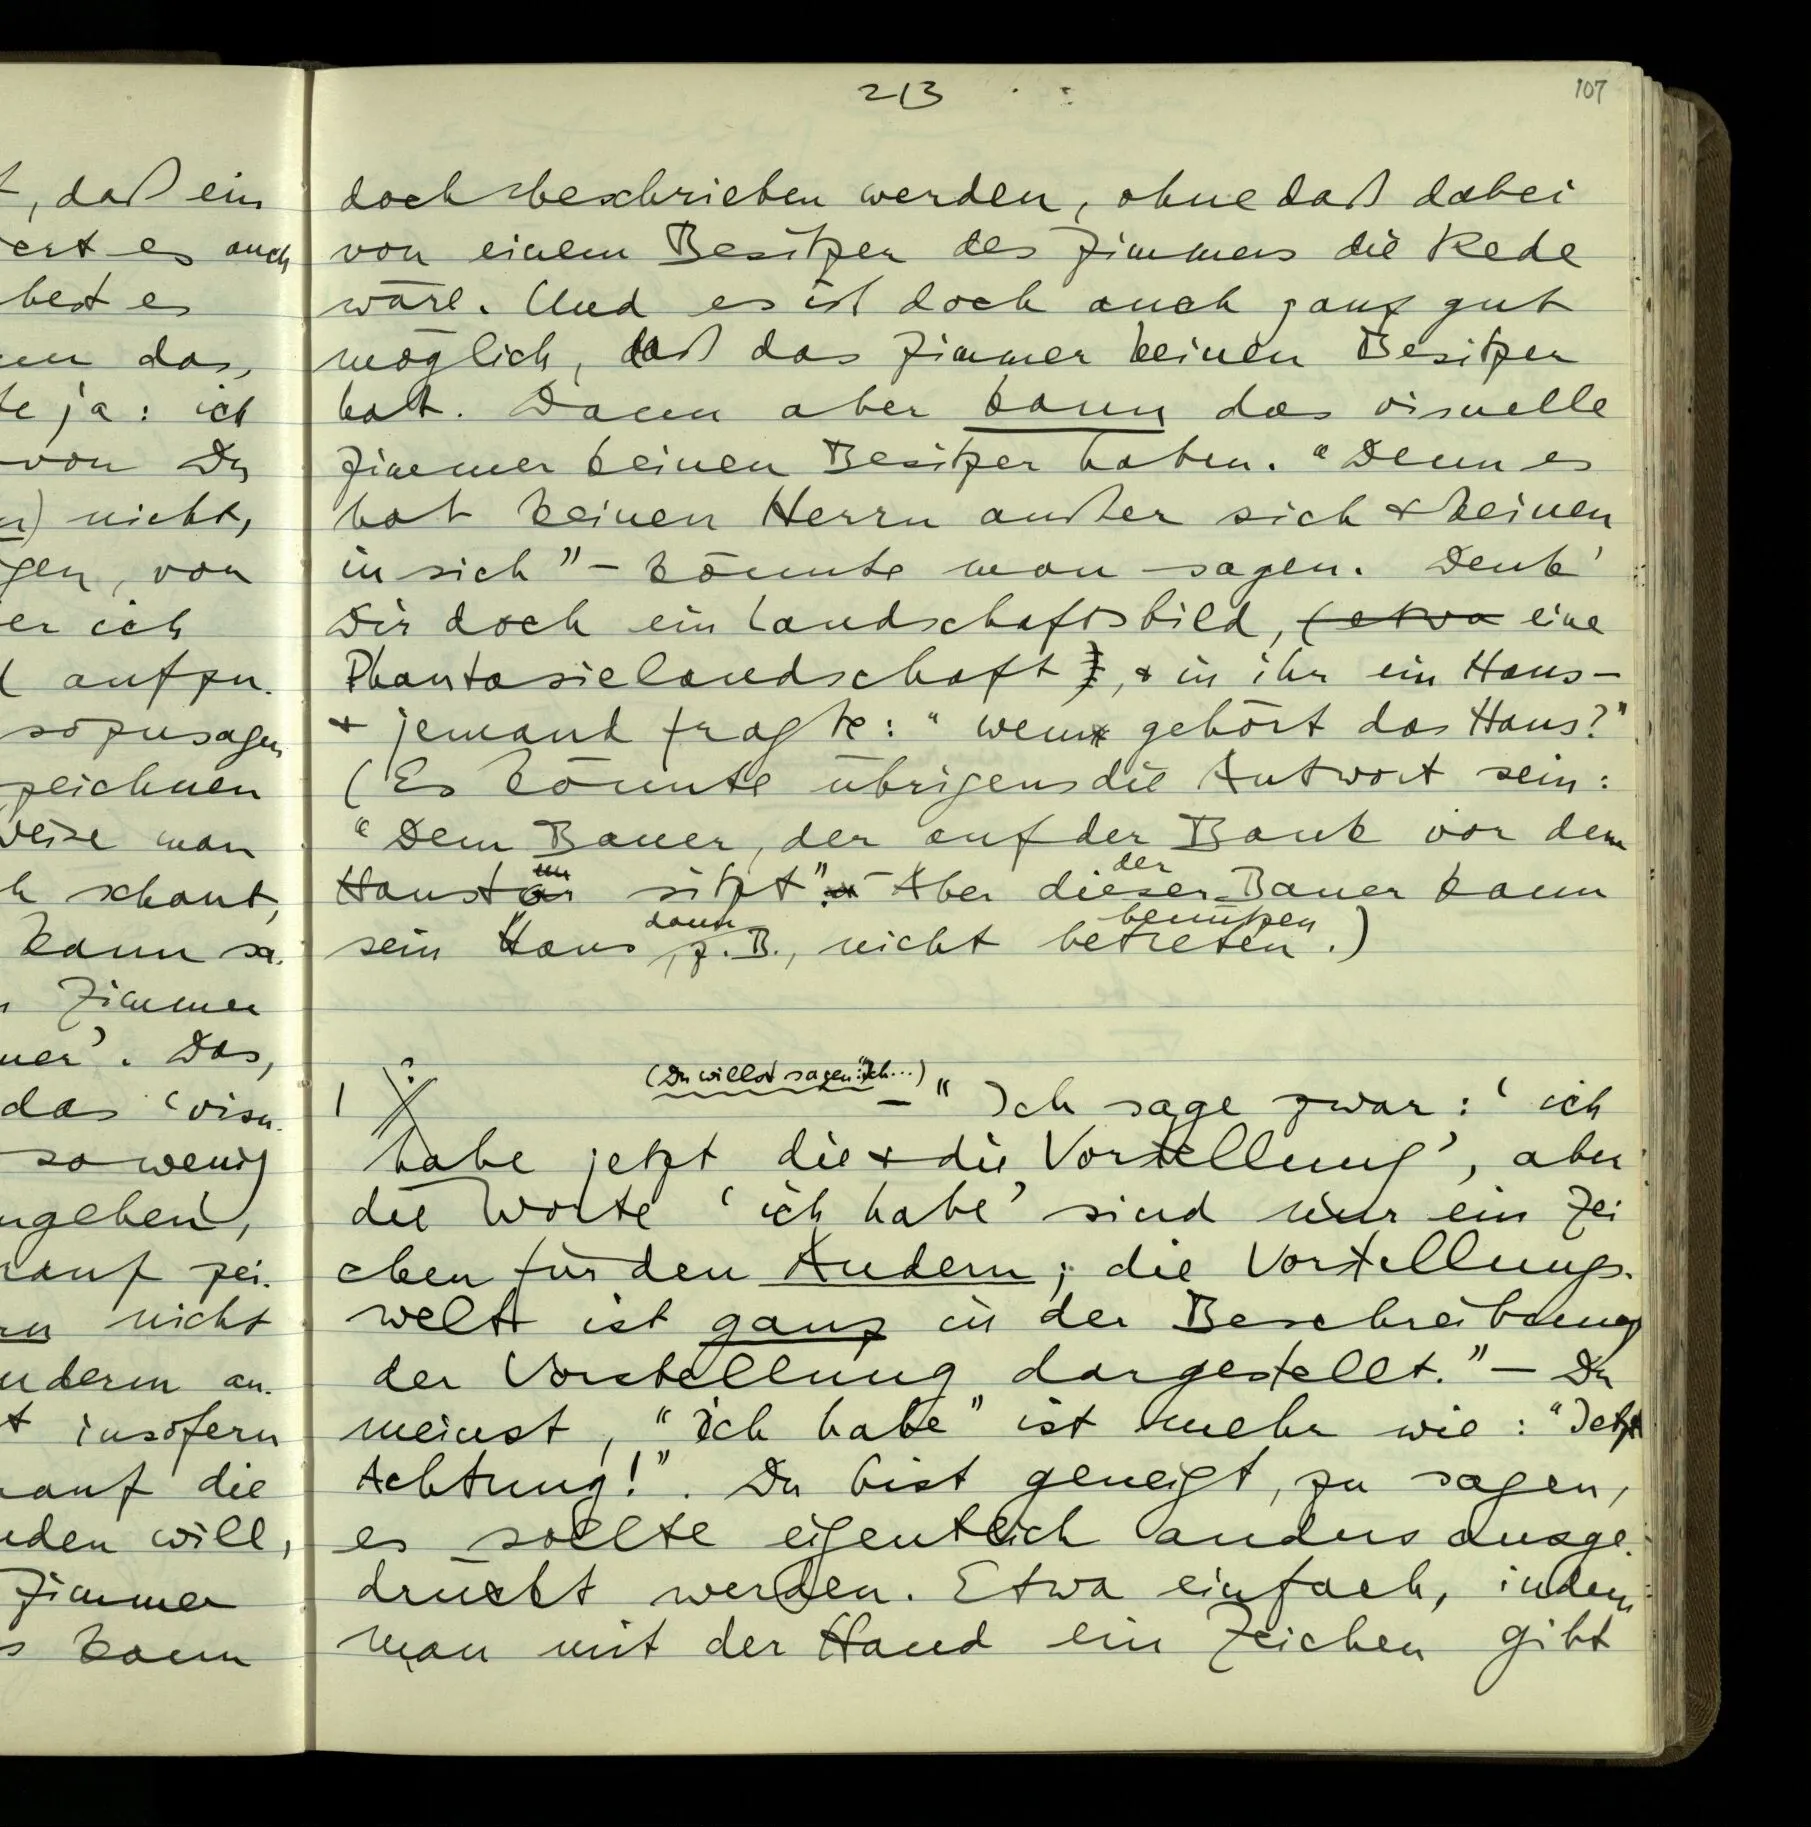 213
107
t, daß ein
ert es auch
best es
en das,
te ja: ich
von Du
n) nicht,
gen, von
er ich
d aufzu-
sozusagen
zeichnen
weise man
h schaut,
kann sa-
s Zimmer
mer'. Das,
das 'visu-
so wenig
ngeben,
rauf zei-
rn nicht
nderm an-
t insofern
rauf die
nden will,
Zimmer
s kann
doch beschrieben werden, ohne daß dabei
von einem Besitzer des Zimmers die Rede
wäre. Und es ist doch auch ganz gut
möglich, daß das Zimmer keinen Besitzer
hat. Dann aber kann das visuelle
Zimmer keinen Besitzer haben. "Denn es
hat keinen Herrn außer sich & keinen
in sich" – könnte man sagen. Denk'
Dir doch ein Landschaftsbild, (etwa eine
Phantasielandschaft), & in ihr ein Haus –
& jemand fragte: "wem gehört das Haus?"
(Es könnte übrigens die Antwort sein:
"Dem Bauer, der auf der Bank vor dem
der
Haustür sitzt". Aber dieser Bauer kann
dann benützen
sein Haus, z.B., nicht betreten.)
(Du willst sagen: "Ich...)
– "Ich sage zwar: 'ich
habe jetzt die & die Vorstellung', aber
die Worte 'ich habe' sind nur ein Zei
chen für den Andern; die Vorstellungs-
welt ist ganz in der Beschreibung
der Vorstellung dargestellt." – Du
meinst, "ich habe" ist mehr wie: "Jetzt
Achtung!". Du bist geneigt, zu sagen,
es sollte eigentlich anders ausge-
drückt werden. Etwa einfach, indem
man mit der Hand ein Zeichen gibt